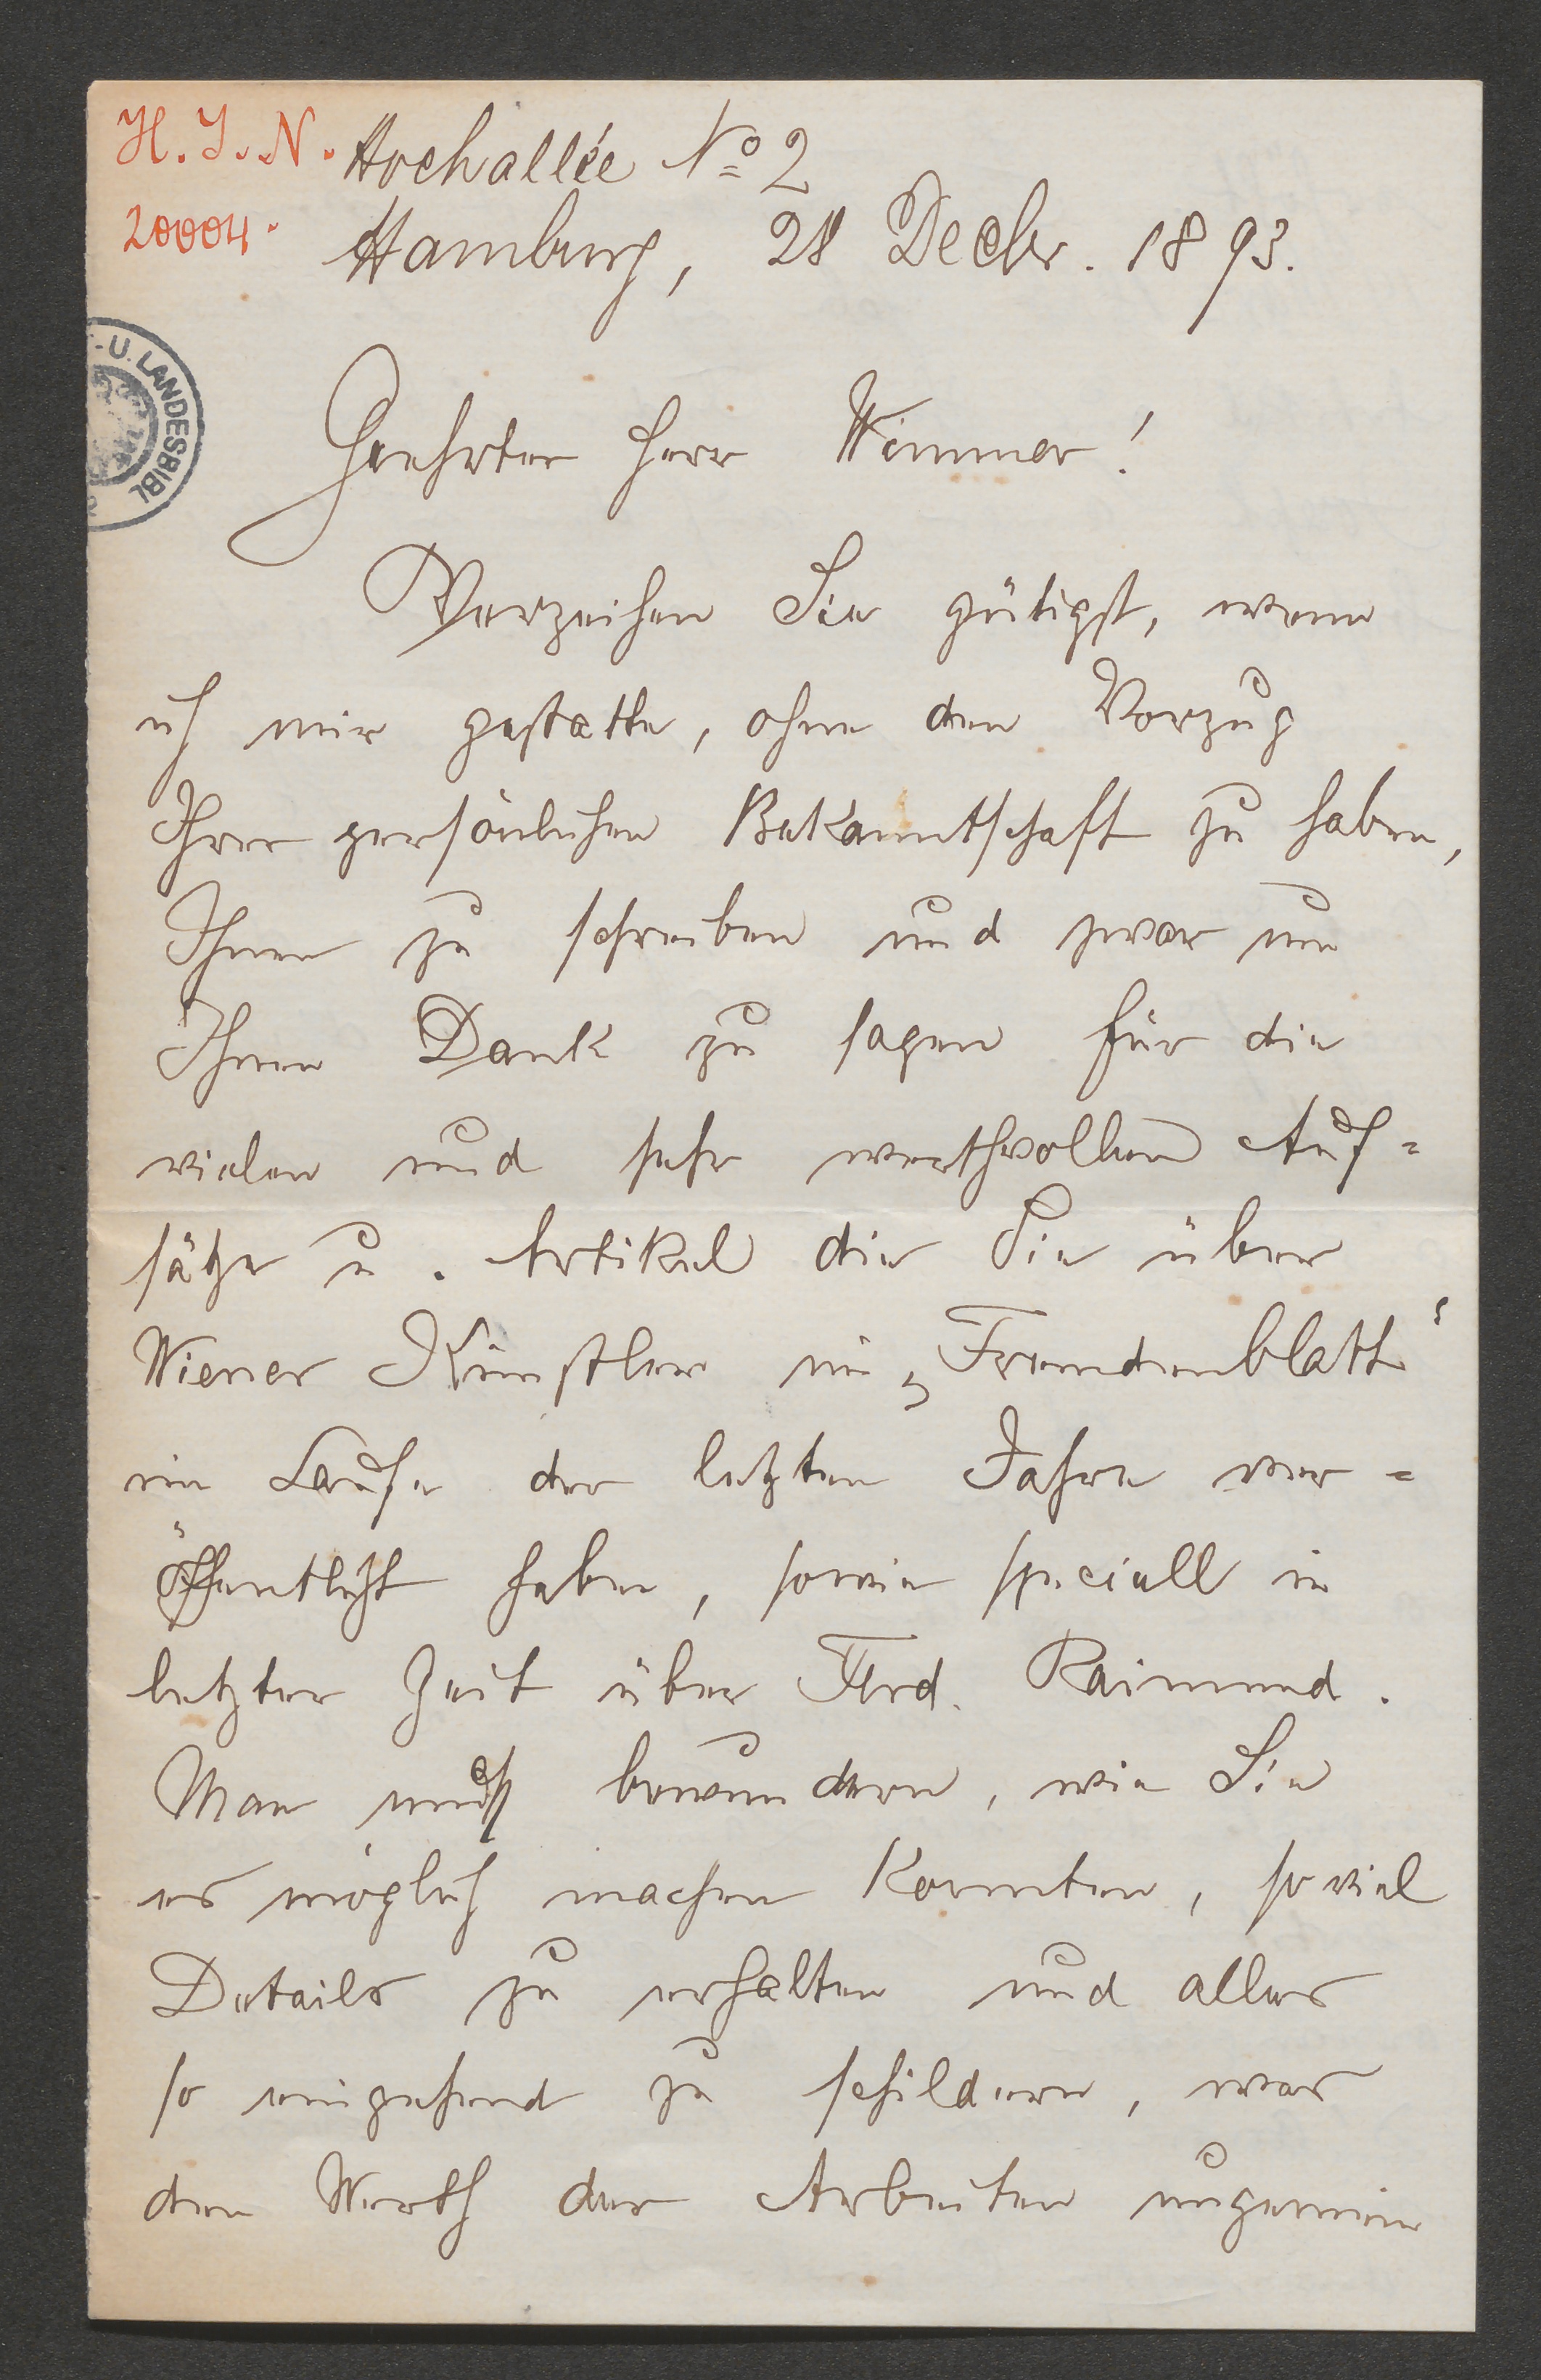 H. I. N. Hochallée No 2
20004. Hamburg, 28 Decbr. 1893.
-U. LANDESBIBL
Geehrter Herr Wimmer!
Verzeihen Sie gütigst, wenn
ich mir gestatte, ohne den Vorzug
Ihrer persönlichen Bekanntschaft zu haben,
Ihnen zu schreiben und zwar um
Ihnen Dank zu sagen für die
vielen und sehr werthvollen Auf=
sätze u. Artikel die Sie über
Wiener Künstler im „Fremdenblatt“
im Laufe der letzten Jahre ver=
öffentlicht haben, sowie speciell in
letzter Zeit über Ferd. Raimund.
Man muß bewundern, wie Sie
es möglich machen konnten, so viel
Details zu erhalten und alles
so eingehend zu schildern, was
den Werth der Arbeiten ungemein